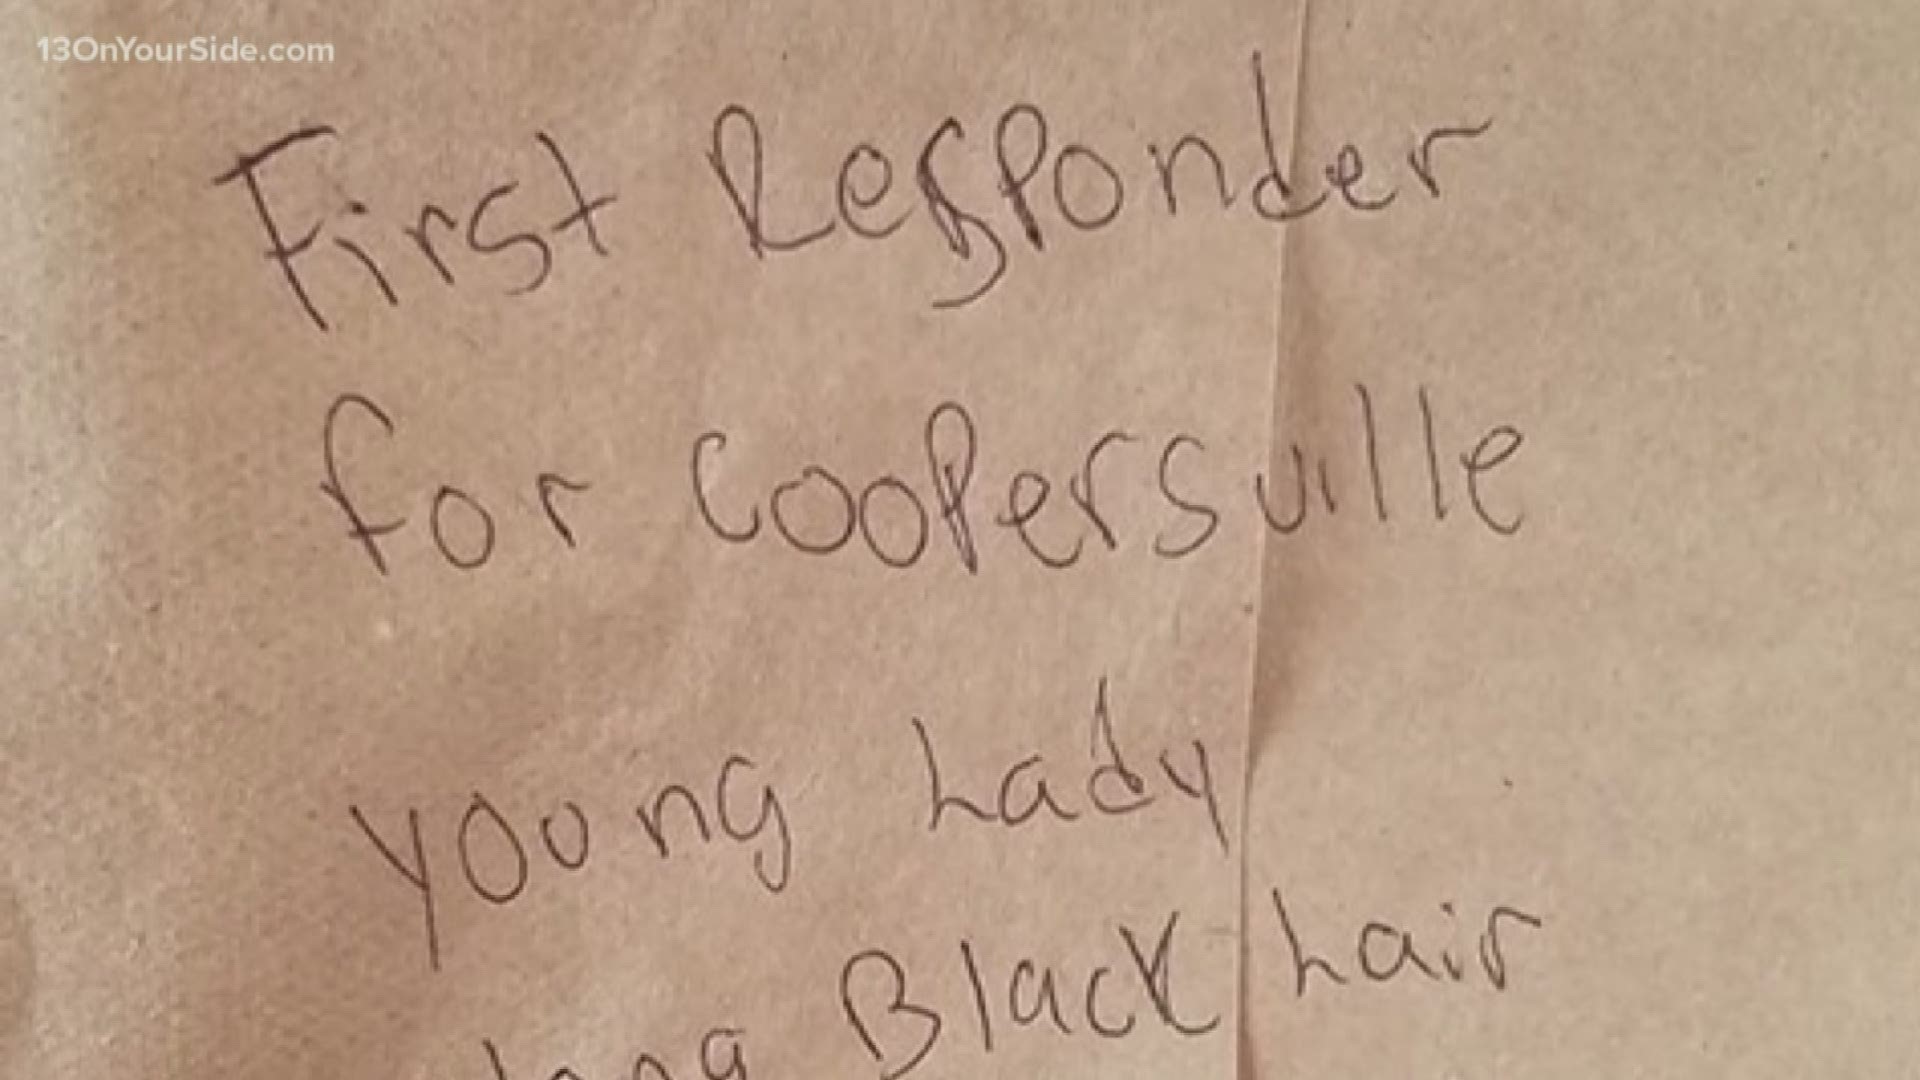 13OnYourSide.com
First Responder
for Coopersville
young Lady
long Black hair